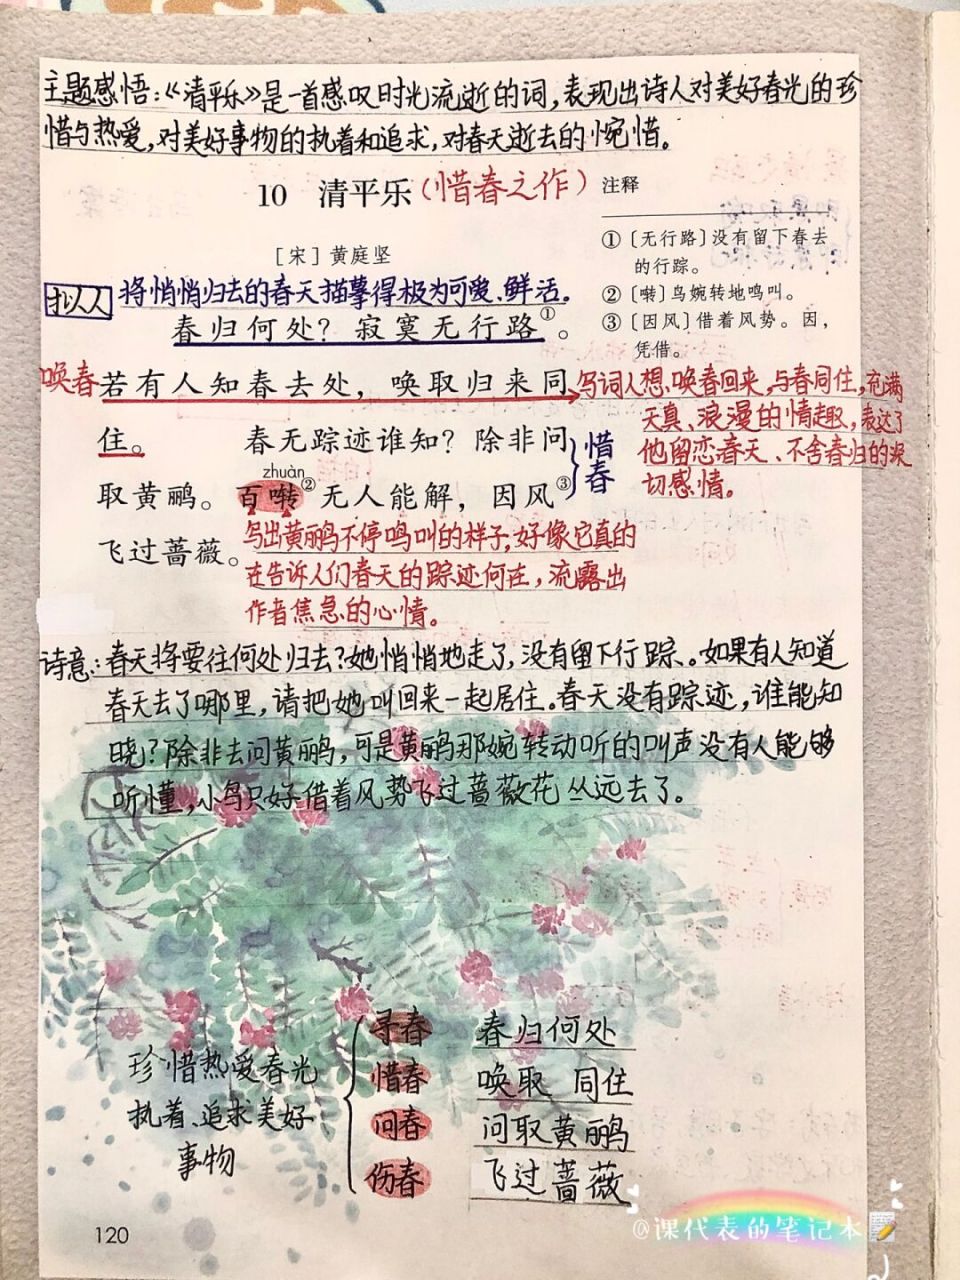 主题感悟:《清平乐》是一首感叹时光流逝的词,表现出诗人对美好春光的珍
惜与热爱,对美好事物的执着和追求,对春天逝去的惋惜。
10 清平乐(惜春之作)
[宋]黄庭坚
注释
①〔无行路〕没有留下春去
的行踪。
②〔啭〕鸟婉转地鸣叫。
③〔因风〕借着风势。因,
凭借。
拟人 将悄悄归去的春天描摹得极为可爱、鲜活。
春归何处?寂寞无行路①。
唤春 若有人知春去处,唤取归来同
住。 春无踪迹谁知?除非问
zhuàn
取黄鹂。百啭②无人能解,因风③
飞过蔷薇。
惜春
写词人想唤春回来,与春同住,充满
天真、浪漫的情趣,表达了
他留恋春天、不舍春归的深
切感情。
写出黄鹂不停鸣叫的样子,好像它真的
在告诉人们春天的踪迹何在,流露出
作者焦急的心情。
诗意:春天将要往何处归去?她悄悄地走了,没有留下行踪、。如果有人知道
春天去了哪里,请把她叫回来一起居住。春天没有踪迹,谁能知
晓?除非去问黄鹂,可是黄鹂那婉转动听的叫声没有人能够
听懂,小鸟只好借着风势飞过蔷薇花丛远去了。
珍惜热爱春光
执着、追求美好
事物
寻春 春归何处
惜春 唤取 同住
问春 问取黄鹂
伤春 飞过蔷薇
120
@课代表的笔记本